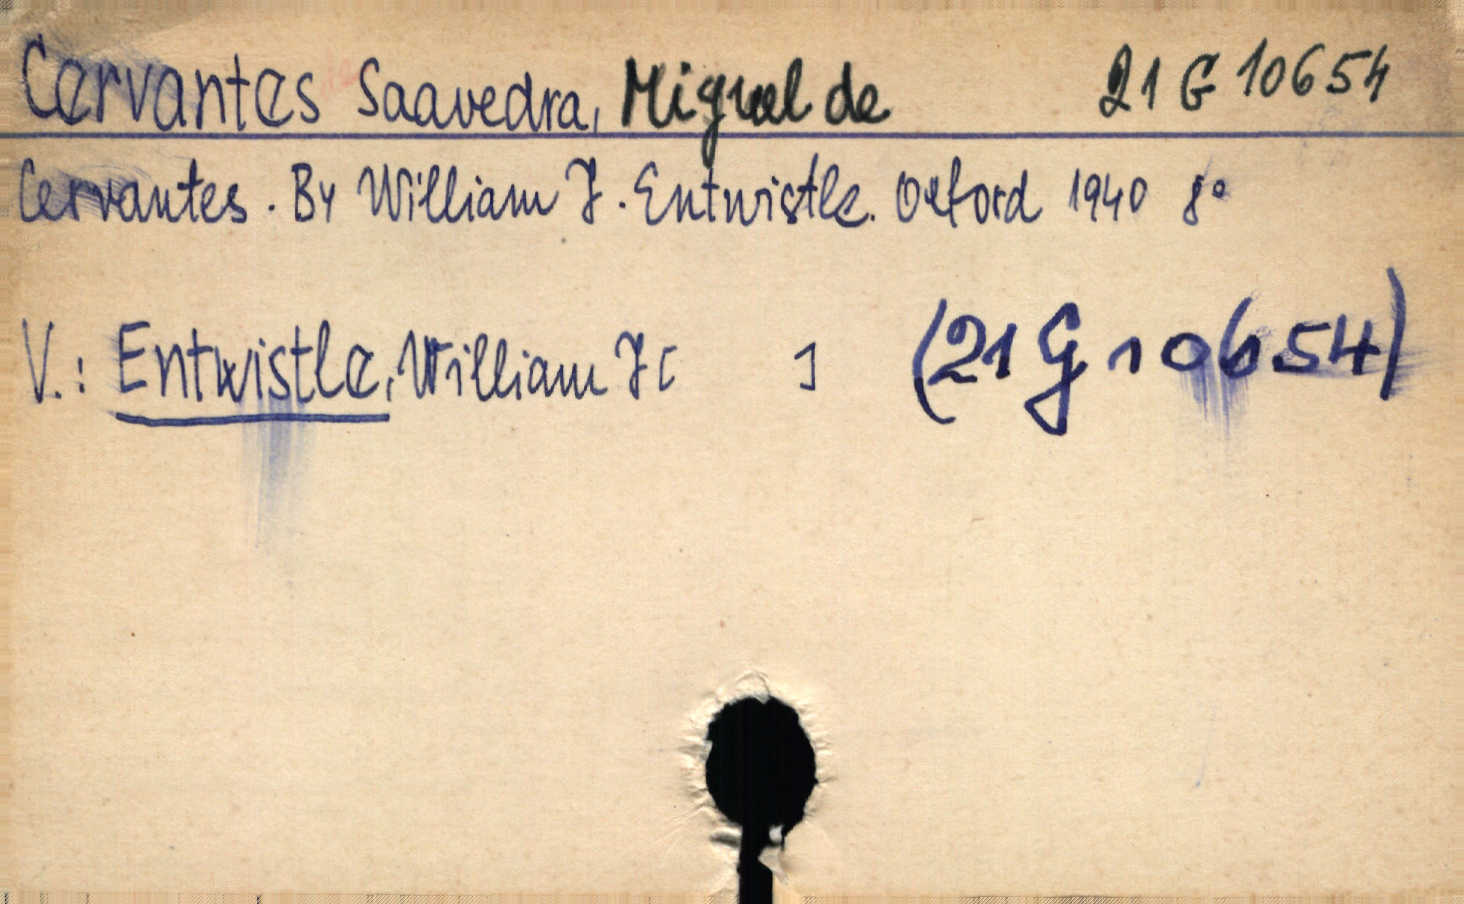 Cervantes Saavedra, Miguel de 21 G 10654
Cervantes. By William J. Entwistle. Oxford 1940 8°
V.: Entwistle, William J[ ] (21 G 10654)